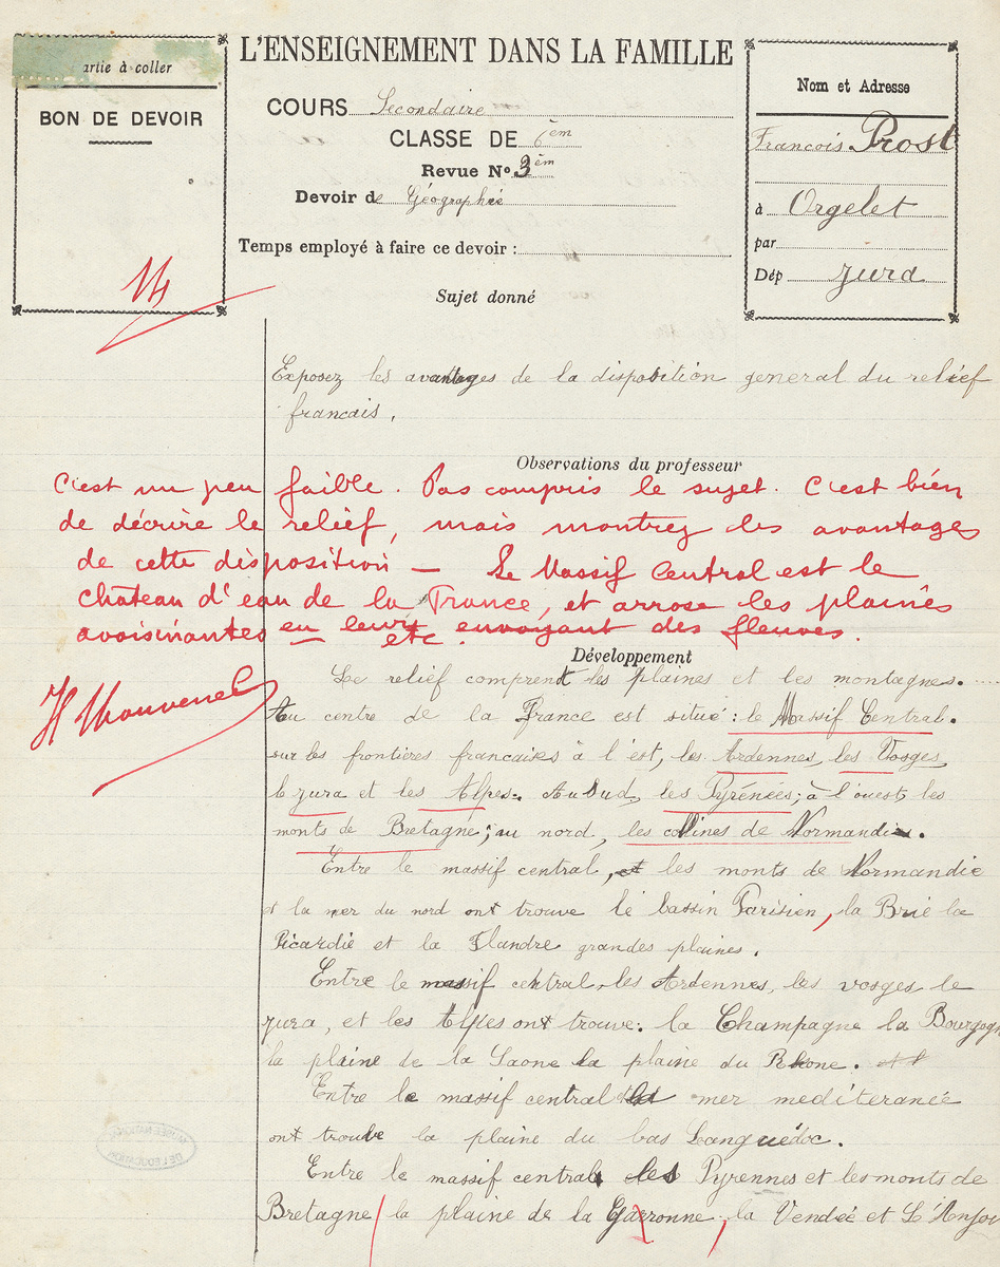 artie à coller
BON DE DEVOIR
14
L'ENSEIGNEMENT DANS LA FAMILLE
COURS Secondaire
CLASSE DE 6èm
Revue No 3èm
Devoir de Géographie
Temps employé à faire ce devoir :
Nom et Adresse
Francois Prost
à Orgelet
par
Dép Jura
Sujet donné
Exposez les avantages de la disposition general du relief
francais.
Observations du professeur
C'est un peu faible. Pas compris le sujet. C'est bien
de décrire le relief, mais montrez les avantages
de cette disposition — Le Massif Central est le
château d'eau de la France, et arrose les plaines
avoisinantes en leur envoyant des fleuves.
etc
H Thouvenel
Développement
Le relief comprent les plaines et les montagnes.
Au centre de la France est situé : le Massif Central.
sur les frontières francaises à l'est, les Ardennes, les Vosges,
le jura et les Alpes. Au Sud, les Pyrénées; à l'ouest, les
monts de Bretagne; au nord, les collines de Normandie.
Entre le massif central, et les monts de Normandie
et la mer du nord ont trouve le bassin Parisien, la Brie la
Picardie et la Flandre grandes plaines.
Entre le massif central, les Ardennes, les vosges le
jura, et les Alpes ont trouve: la Champagne la Bourgogn
la plaine de la Saone la plaine du Rhone.
Entre le massif central la mer mediteranée
ont trouve la plaine du bas Languédoc.
Entre le massif central les Pyrennes et les monts de
Bretagne la plaine de la Garronne, la Vendée et L'Anjou
MUSÉE NATIONAL
DE L'ÉDUCATION